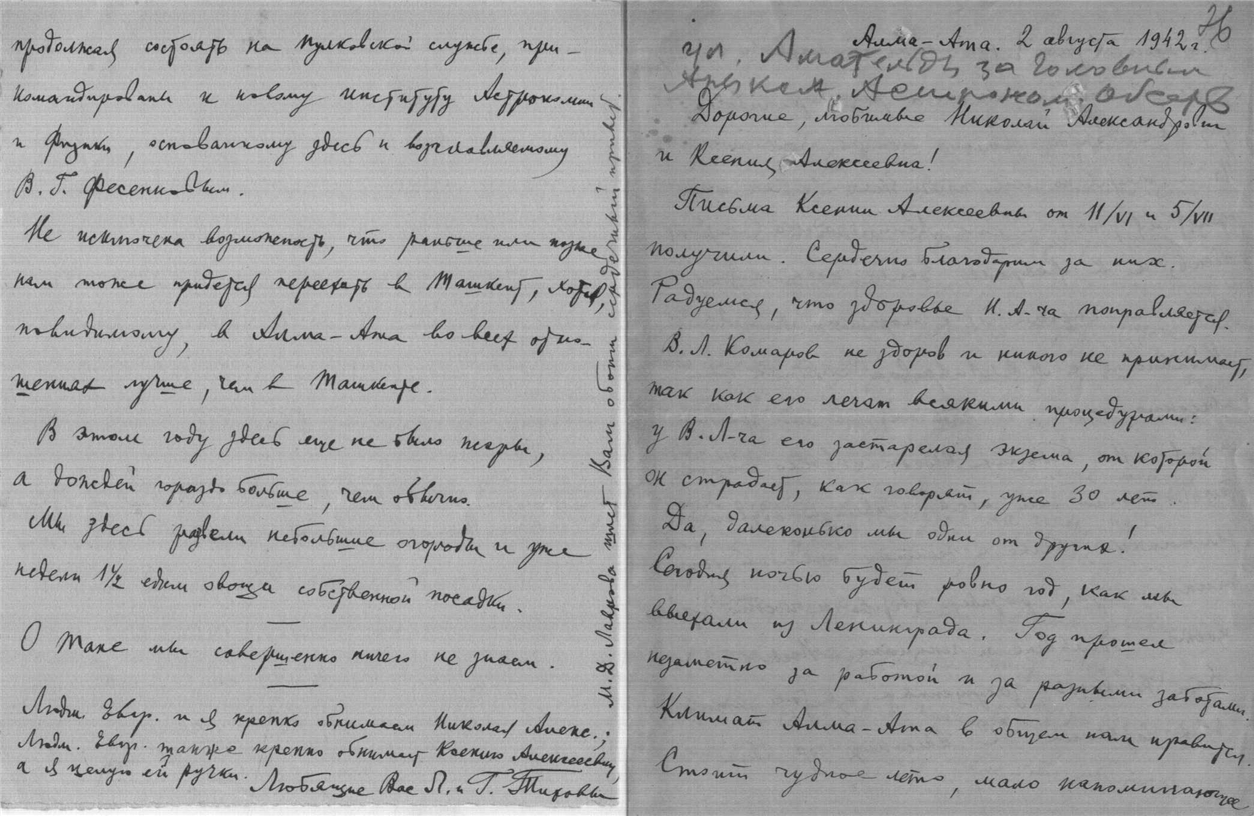 продолжая состоять на пулковской службе, при-
командированы к новому институту Астрономии
и Физики, основанному здесь и возглавляемому
В. Г. Фесенковым.
Не исключена возможность, что раньше или позже
нам тоже придется переехать в Ташкент, хотя,
повидимому, в Алма-Ата во всех отно-
шениях лучше, чем в Ташкенте.
В этом году здесь еще не было жары,
а дождей гораздо больше, чем обычно.
Мы здесь развели небольшие огороды и уже
недели 1½ едим овощи собственной посадки.
О Тане мы совершенно ничего не знаем.
Людм. Евгр. и я крепко обнимаем Николая Алекс.;
Людм. Евгр. также крепко обнимает Ксению Алексеевну,
а я целую ей ручки. Любящие Вас Л. и Г. Тиховы
М. Д. Лаврова шлет Вам обоим сердечный привет.
76
Алма-Ата. 2 августа 1942 г.
ул. Амательды за Головным
Арыком. Астроном. Обсерв
Дорогие, любимые Николай Александрович
и Ксения Алексеевна!
Письма Ксении Алексеевны от 11/VI и 5/VII
получили. Сердечно благодарим за них.
Радуемся, что здоровье Н. А-ча поправляется.
В. Л. Комаров не здоров и никого не принимает,
так как его лечат всякими процедурами:
у В. Л-ча его застарелая экзема, от которой
он страдает, как говорят, уже 30 лет.
Да, далеконько мы одни от других!
Сегодня ночью будет ровно год, как мы
выехали из Ленинграда. Год прошел
незаметно за работой и за разными заботами.
Климат Алма-Ата в общем нам нравится.
Стоит чудное лето, мало напоминающее